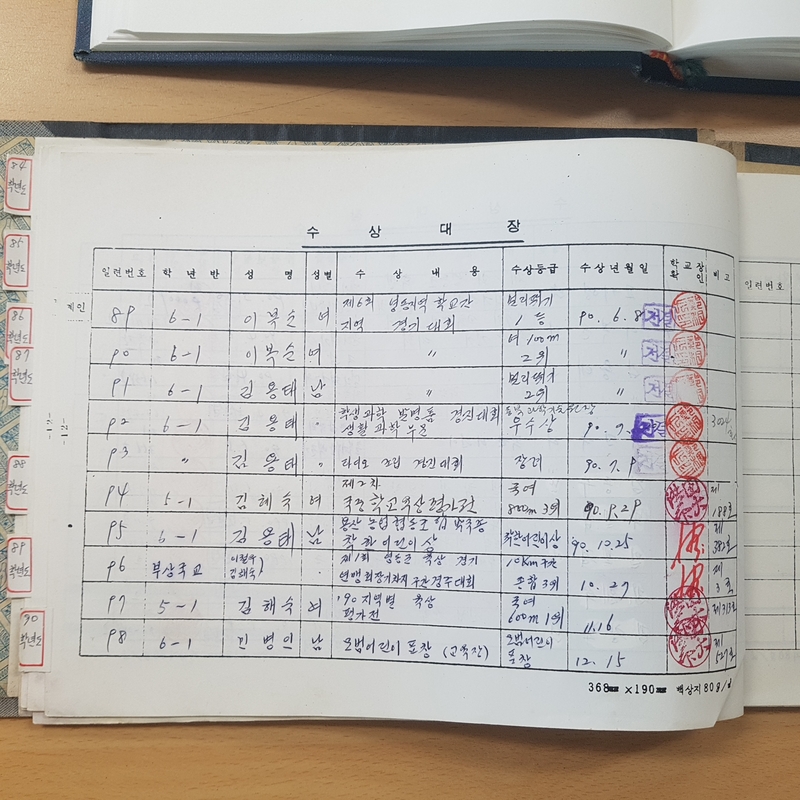 84
학년도
85
학년도
86
학년도
87
학년도
88
학년도
89
학년도
90
학년도
수 상 대 장
일련번호 학 년 반 성 명 성별 수 상 내 용 수상등급 수상년월일 학교장 확인 비고
계인
89 6-1 이복순 여 제6회 영동지역 학교간 지역 경기대회 멀리뛰기 1등 90. 6. 8 전결
90 6-1 이복순 여 〃 여 100m 2위 〃 전결
91 6-1 김용태 남 〃 멀리뛰기 2위 〃 전결
92 6-1 김용태 학생과학 발명품 경진대회 생활과학 부문 우수상 90. 7.
93 〃 김용태 〃 라디오 조립 경진대회 장려 90. 7. 9
94 5-1 김혜숙 여 제2차 국민학교 육상 평가전 국여 800m 3위 90. 9. 29 제188호
95 6-1 김용태 남 착한어린이상 착한어린이상 90. 10. 25 제382호
96 부상국교 제1회 영동군 육상 경기 연맹회장기차지 구간경주대회 10Km 구간 종합 3위 10. 27 제3호
97 5-1 김해숙 여 '90 지역별 육상 평가전 국여 600m 1위 11. 16 제313호
98 6-1 민병의 남 모범어린이 표창 (교육장) 모범어린이 표창 12. 15 제527호
-12-
-12-
368㎜ ×190㎜ 백상지 80g/㎡
일련번호